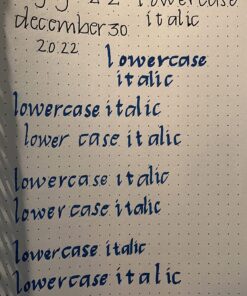 lowercase
december 30 italic
20.22
lowercase
italic
lowercase italic
lower case italic
lowercase italic
lowercase italic
lowercase italic
lowercase italic